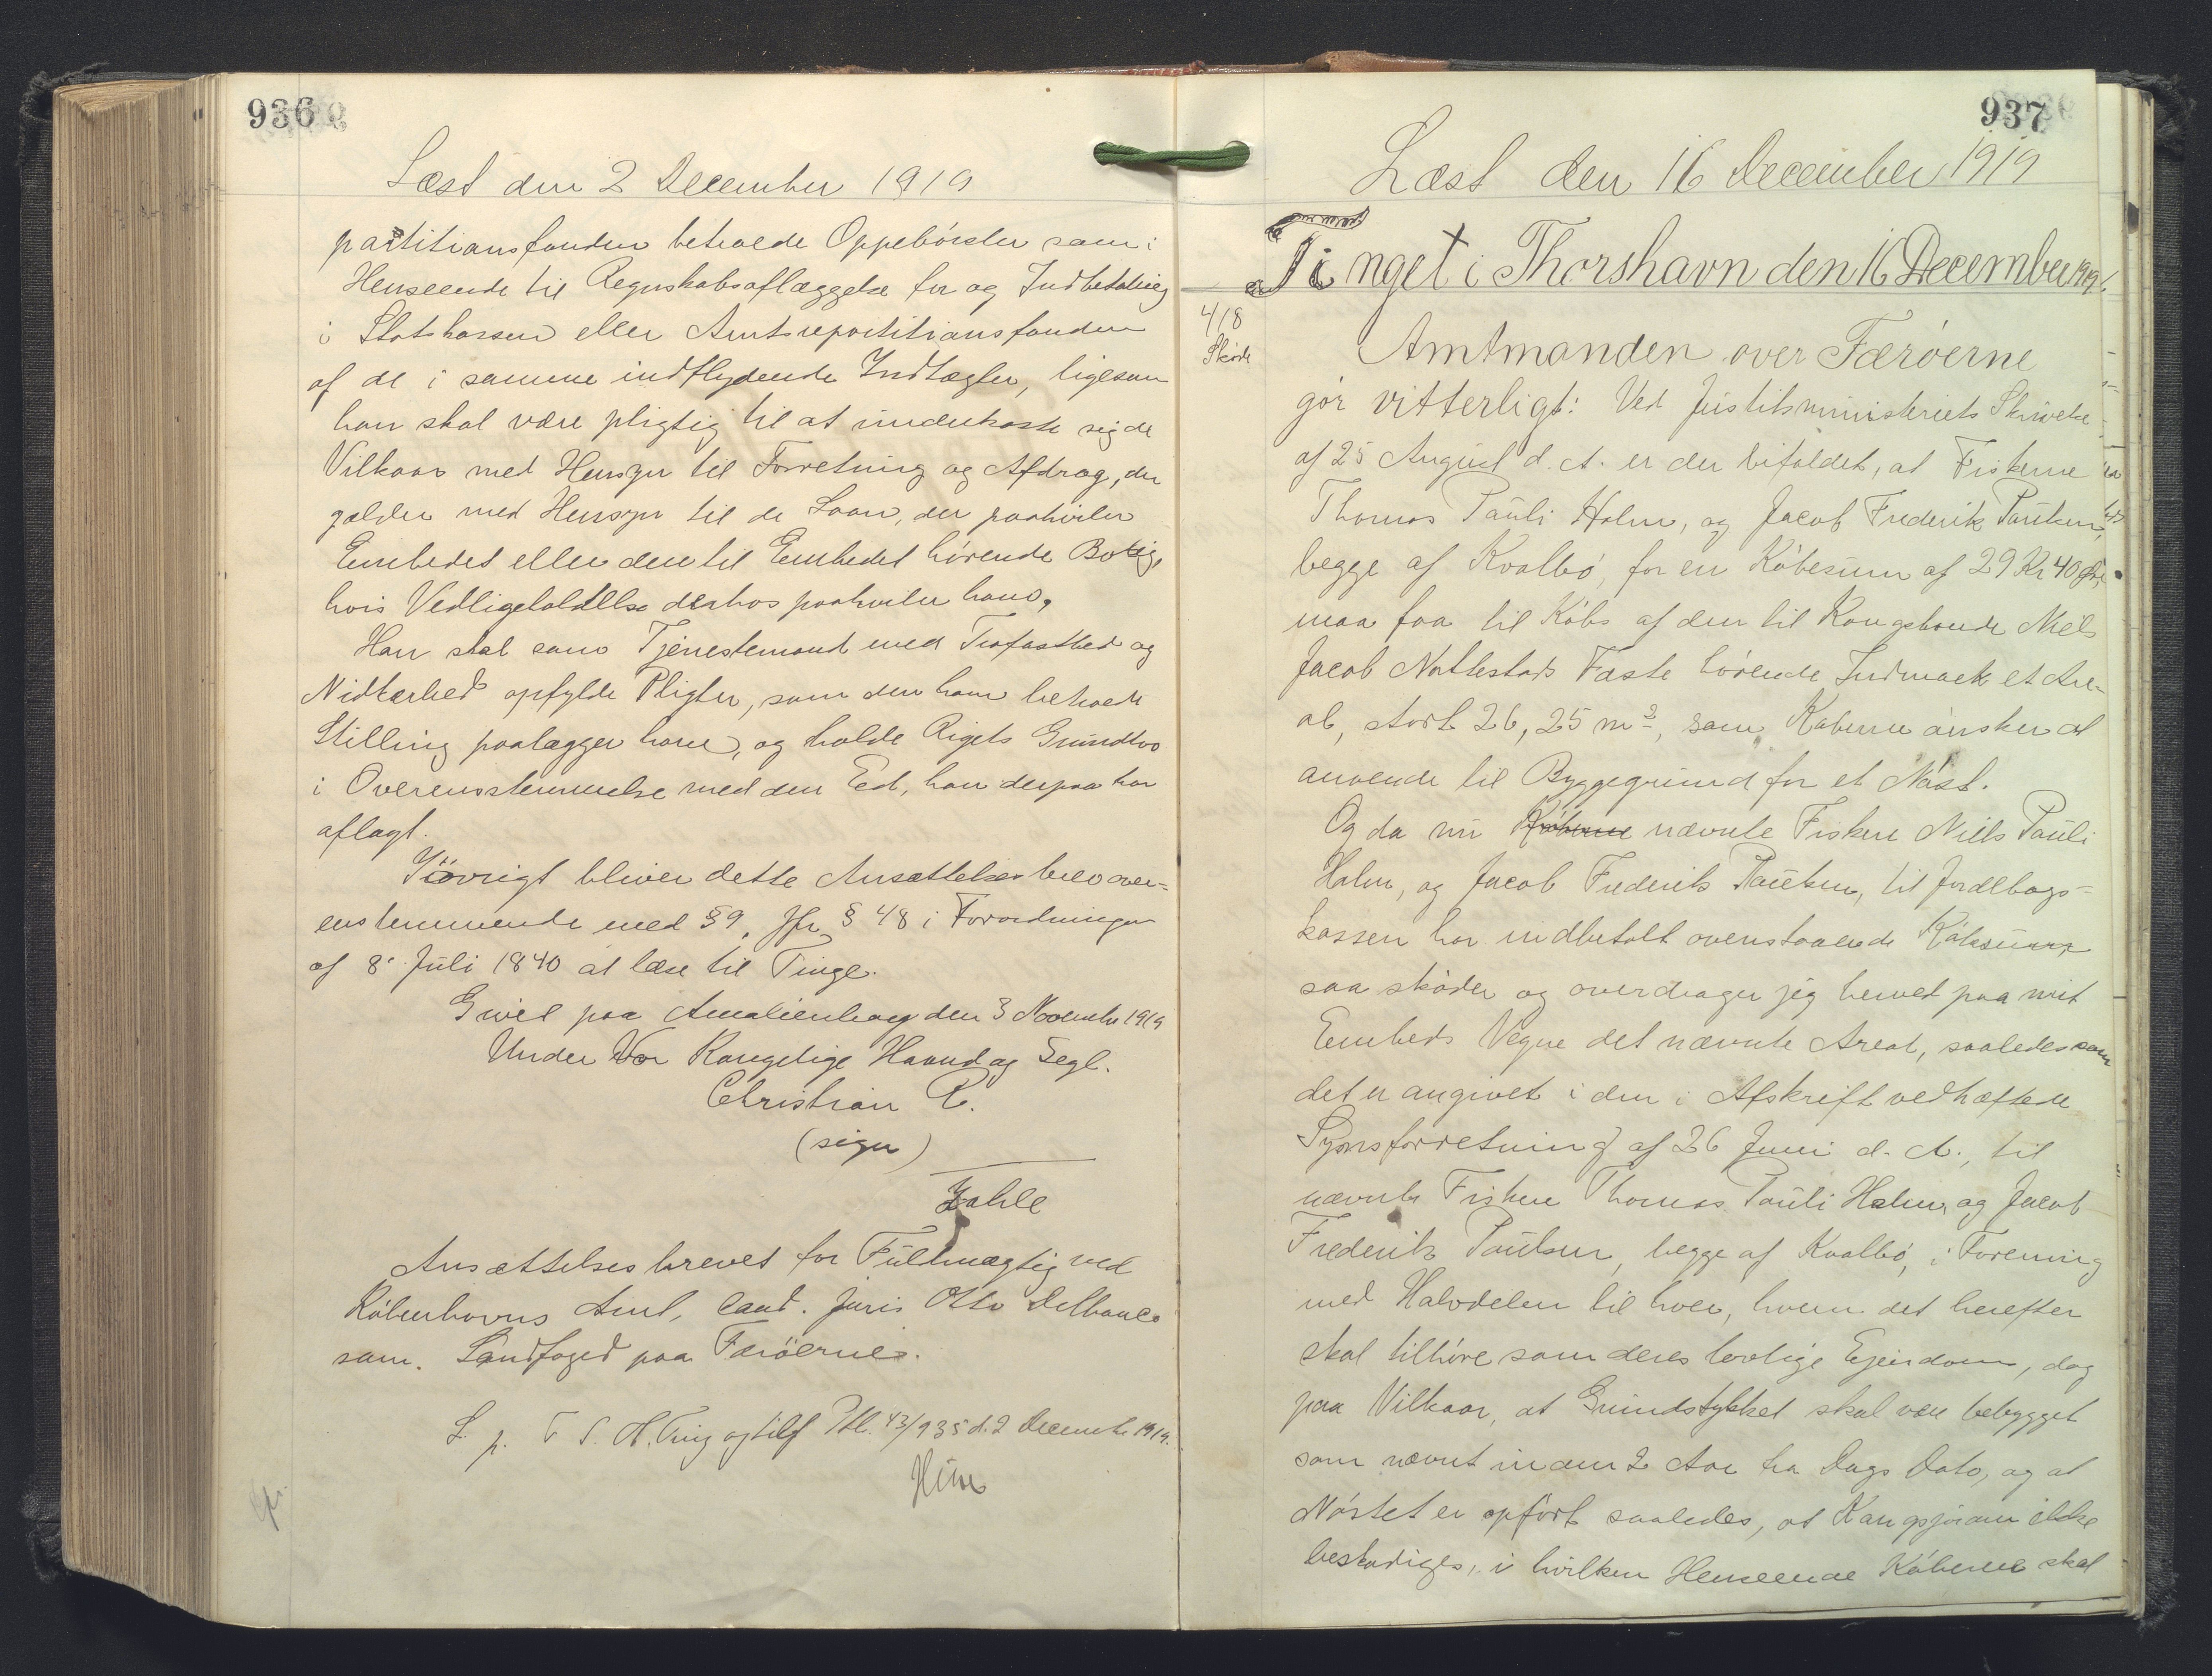 936
Læst den 2 December 1919
partitionsfonden betroede Oppebörsler sam i
Henseende til Regnskabsaflæggelse for og Indbetaling
i Statskassen eller Amtsrepartitionsfonden
af de i samme indflydende Indtægter, ligesom
han skal være pligtig til at underkaste sig de
Vilkaar med Hensyn til Forretning og Afdrag, der
gælder med Hensyn til de Laan, der paahviler
Embedet eller den til Embedet hörende Bolig,
hvis Vedligeholdelse derhos paahviler ham.
Han skal som Tjenestemand med Trofasthed og
Nidkærhed opfylde Pligter, som den ham betroede
Stilling paalægger ham, og holde Rigets Grundlov
i Overensstemmelse med den Ed, han derpaa har
aflagt.
Iövrigt bliver dette Ansættelsesbrev over-
ensstemmende med § 9, jfr § 48 i Forordningen
af 8' Juli 1840 at læse til Tinge.
Givet paa Amalienborg den 3 November 1919
Under Vor Kongelige Haand og Segl.
Christian R.
(sign)
Zahle
Ansættelsesbrevet for Fuldmægtig ved
Københavns Amt, cand. juris Otto Delbanco
som Landfoged paa Færöerne.
L. p. T S. H. Ting og tilf Ptl. 43/935 d. 2 December 1919.
937
Læst den 16 December 1919
Tinget i Thorshavn den 16 December 1919.
418
Sköde
Amtmanden over Færöerne
gör vitterligt: Ved Justitsministeriets Skrivelse
af 25 August d. A. er der bifaldet, at Fiskerne
Thomas Pauli Holm, og Jacob Frederik Poulsen,
begge af Kvalbö, for en Köbesum af 29 Kr 40 Öre,
maa faa til Köbs af den til Kongsbonde Niels
Jacob Nattestads Fæste hörende Indmark et Are-
al, stort 26,25 m², som Köberne önsker at
anvende til Byggegrund for et Nöst.
Og da nu Köberne nævnte Fiskere Niels Pauli
Holm, og Jacob Frederik Poulsen, til Jordebogs-
kassen har indbetalt ovenstaaende Köbesum
saa sköder og overdrager jeg herved paa mit
Embeds Vegne det nævnte Areal, saaledes som
det er angivet i den i Afskrift vedhæftede
Synsforretning af 26 Juni d. A., til
nævnte Fiskere Thomas Pauli Holm, og Jacob
Frederik Poulsen, begge af Kvalbö, i Forening
med Halvdelen til hver, hvem det herefter
skal tilhöre som deres lovlige Ejendom, dog
paa Vilkaar, at Grundstykket skal være bebygget
som nævnt inden 2 Aar fra Dags Dato, og at
Nöstet er opfört saaledes, at Kongsjorden ikke
beskadiges, i hvilken Henseende Köberne skal